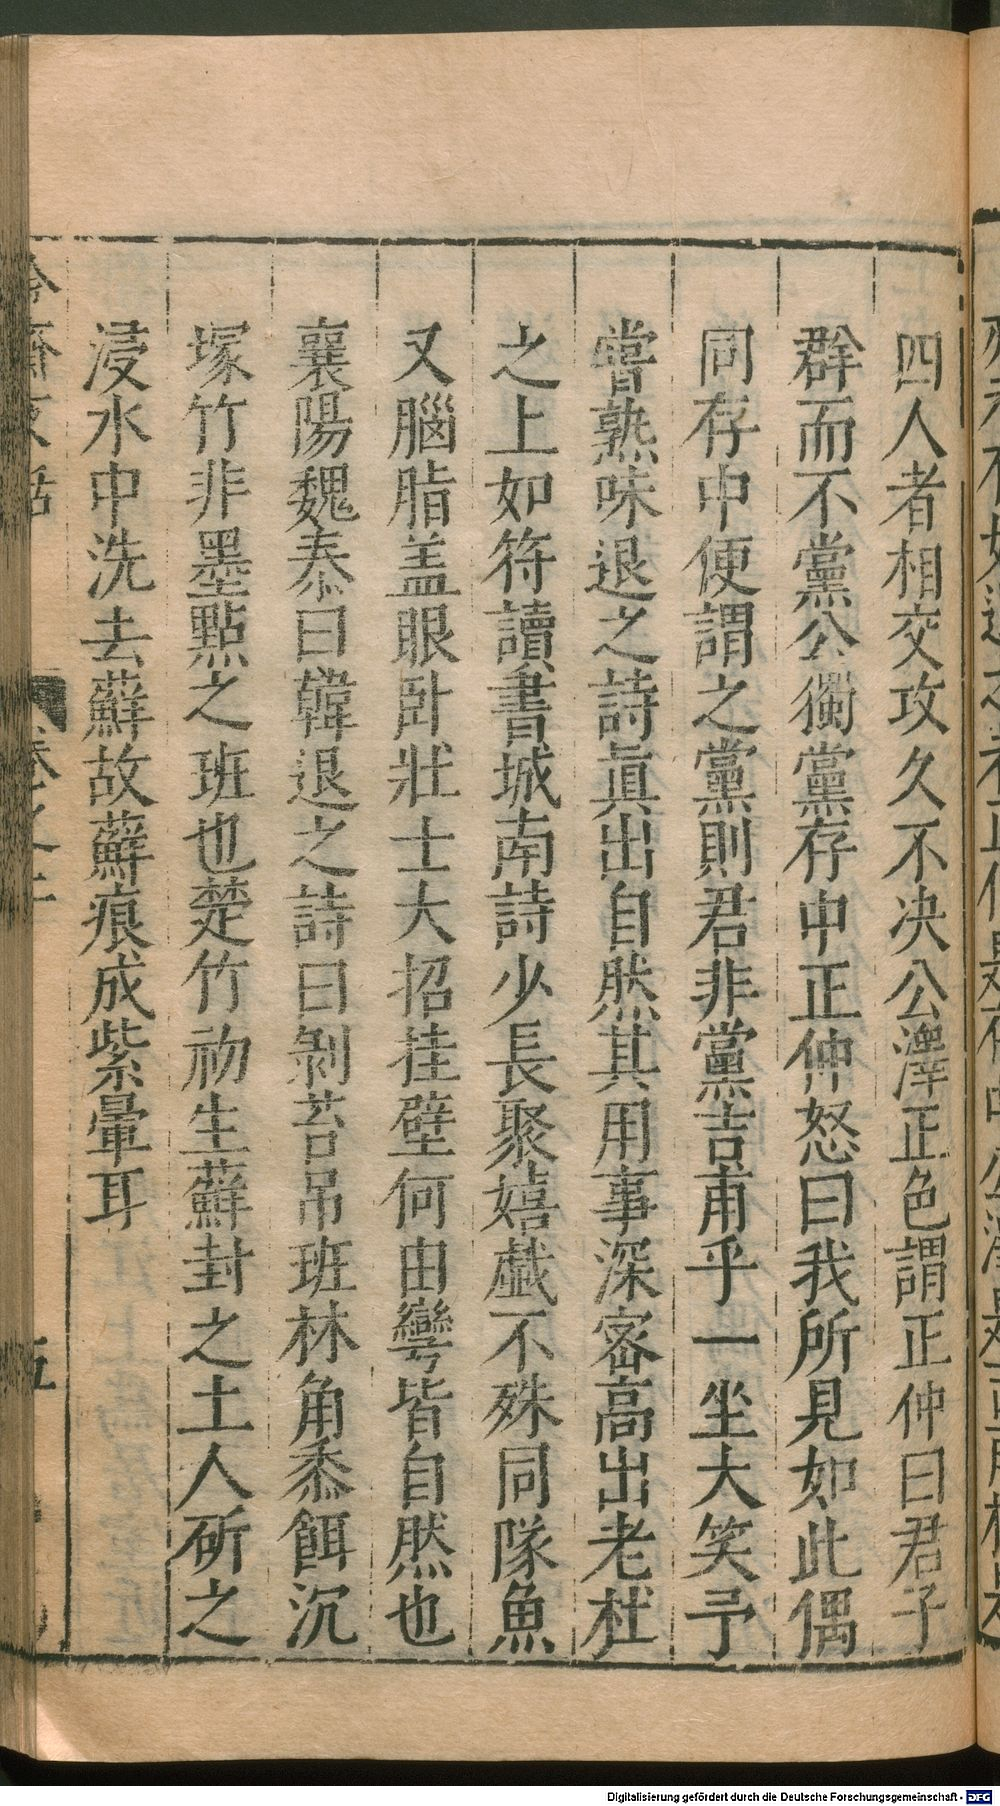 四人者相交攻久不决公澤正色謂正仲曰君子
群而不黨公獨黨存中正仲怒曰我所見如此偶
同存中便謂之黨則君非黨吉甫乎一坐大笑予
嘗熟味退之詩眞出自然其用事深密高出老杜
之上如符讀書城南詩少長聚嬉戱不殊同隊魚
又腦脂盖眼卧壯士大招挂壁何由彎皆自然也
襄陽魏泰曰韓退之詩曰剝苔吊班林角黍餌沉
塚竹非墨點之班也楚竹初生蘚封之土人斫之
浸水中洗去蘚故蘚痕成紫暈耳
Digitalisierung gefördert durch die Deutsche Forschungsgemeinschaft - DFG